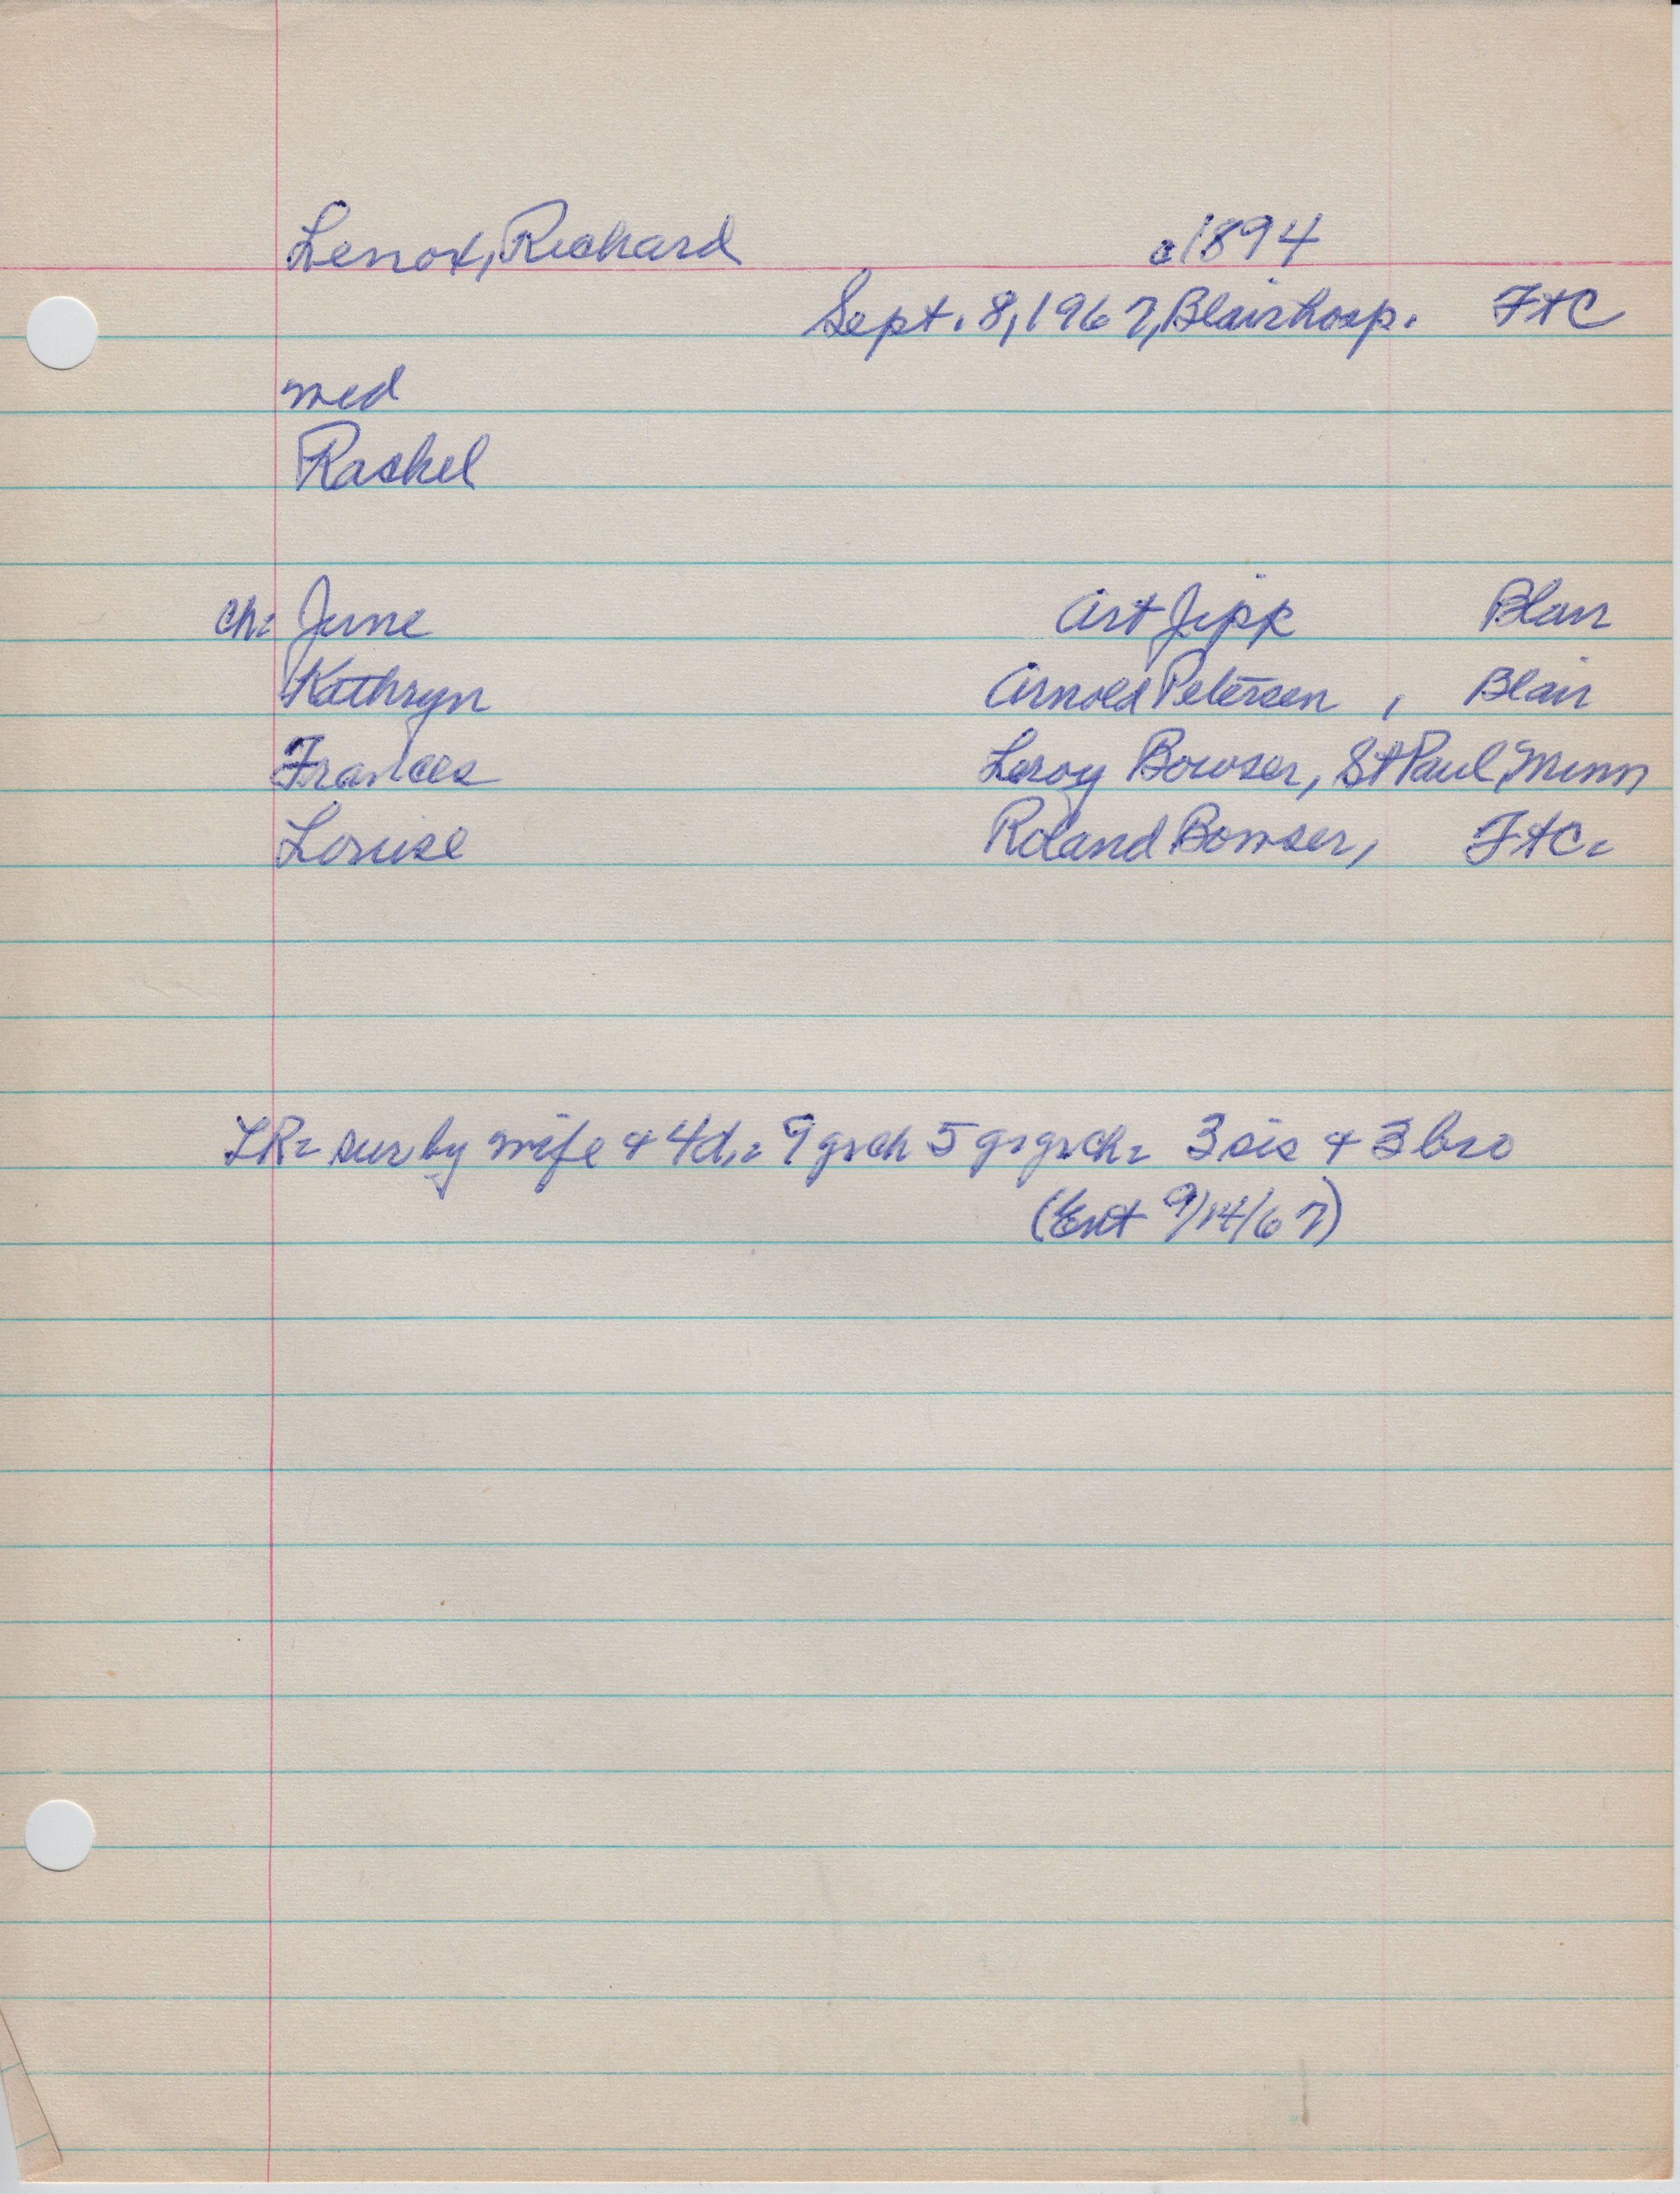 Lenox, Richard c1894
Sept. 8, 1967, Blair hosp. FtC
med
Rachel
ch: June Art Jipp Blair
Kathryn Arnold Petersen, Blair
Frances Leroy Bowser, St Paul, Minn
Louise Roland Bowser, FtC.
LR= sur by wife & 4d.= 9 grch 5 grgrch= 3 sis & 3 bro
(Ent 9/14/67)